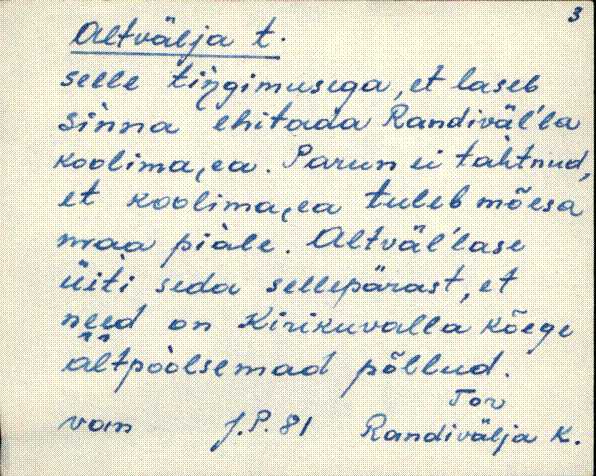 3
Altvälja t.
selle tiŋgimusega, et laseb
sìnna ehitada Randiväl'la
koolima,ea. Parun ei tahtnud,
et koolima,ea tuleb mõesa
maa piàle. Altväl'lase
üiti seda sellepärast, et
need on Kirikuvalla kõege
ältpoòlsemad põllud.
Tor
van J.P. 81 Randivälja k.